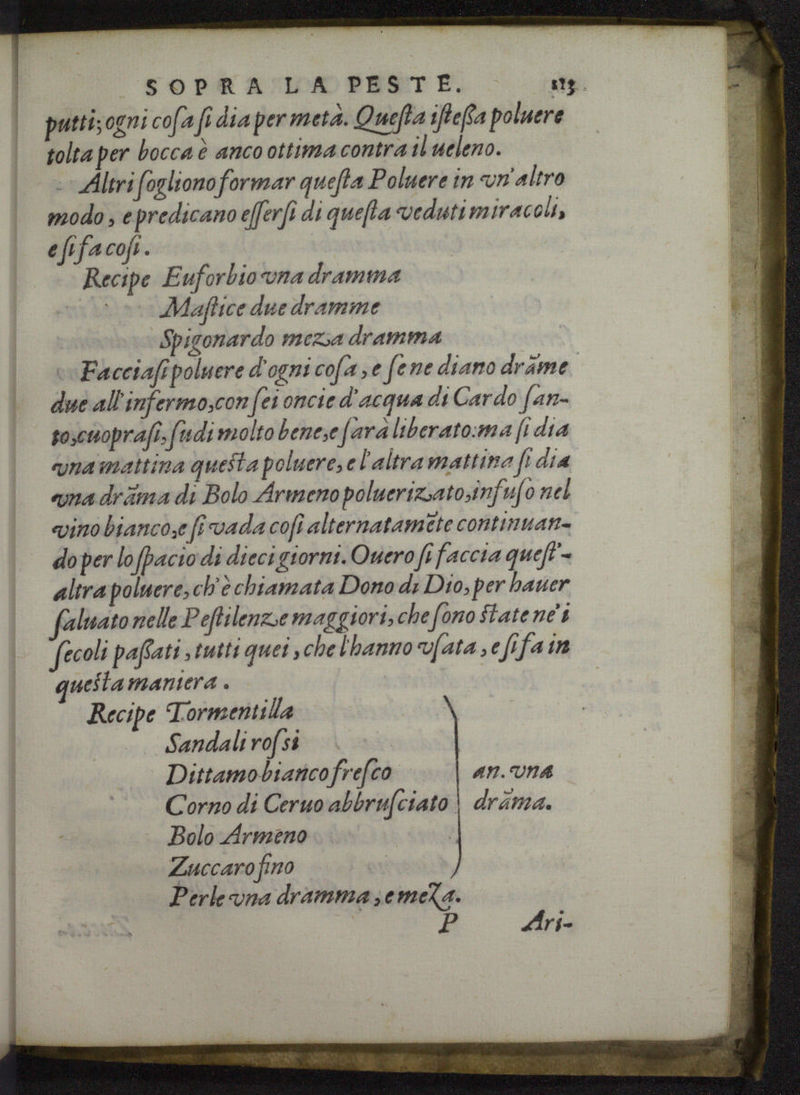 SOPRA LA PESTE. 113
putti; ogni coſa ſi dia per metà. Queſta iſteſſa poluere
tolta per bocca è anco ottima contra il ueleno.
Altri ſogliono formar queſta Poluere in vn'altro
modo, e predicano eſſerſi di queſta veduti miracoli,
e ſi fa coſi.
Recipe Euforbio vna dramma
Maſtice due dramme
Spigonardo meza dramma
Facciaſi poluere d'ogni coſa, e ſe ne diano drãme
due all'infermo, con ſei oncie d'acqua di Cardo ſan-
to, cuopraſi, ſudi molto bene, e ſarà liberato: ma ſi dia
vna mattina queſta poluere, e l'altra mattina ſi dia
vna drãma di Bolo Armeno poluerizato, infuſo nel
vino bianco, e ſi vada coſi alternatamẽte continuan-
do per lo ſpacio di dieci giorni. Ouero ſi faccia queſt'-
altra poluere, ch'è chiamata Dono di Dio, per hauer
ſaluato nelle Peſtilenze maggiori, che ſono ſtate ne' i
ſecoli paſſati, tutti quei, che l'hanno vſata, e ſi fa in
queſta maniera.
Recipe Tormentilla
Sandali roſsi
Dittamo bianco freſco an. vna
Corno di Ceruo abbruſciato drãma.
Bolo Armeno
Zuccaro fino
Perle vna dramma, e meza.
P Ari-